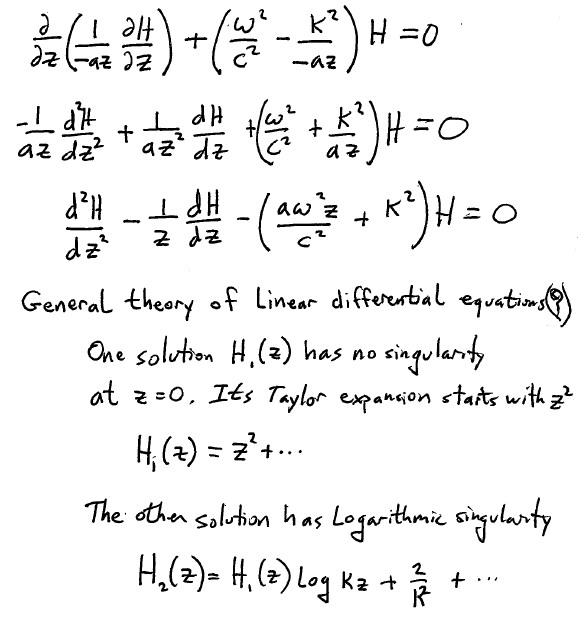 ∂/∂z (1/(-az) ∂H/∂z) + (ω²/c² - K²/(-az)) H = 0
-1/(az) d²H/dz² + 1/(az²) dH/dz + (ω²/c² + K²/(az)) H = 0
d²H/dz² - 1/z dH/dz - (aω²z/c² + K²) H = 0
General theory of Linear differential equations(?)
One solution H₁(z) has no singularity
at z=0. Its Taylor expansion starts with z²
H₁(z) = z² + ...
The other solution has Logarithmic singularity
H₂(z) = H₁(z) Log Kz + 2/K² + ...